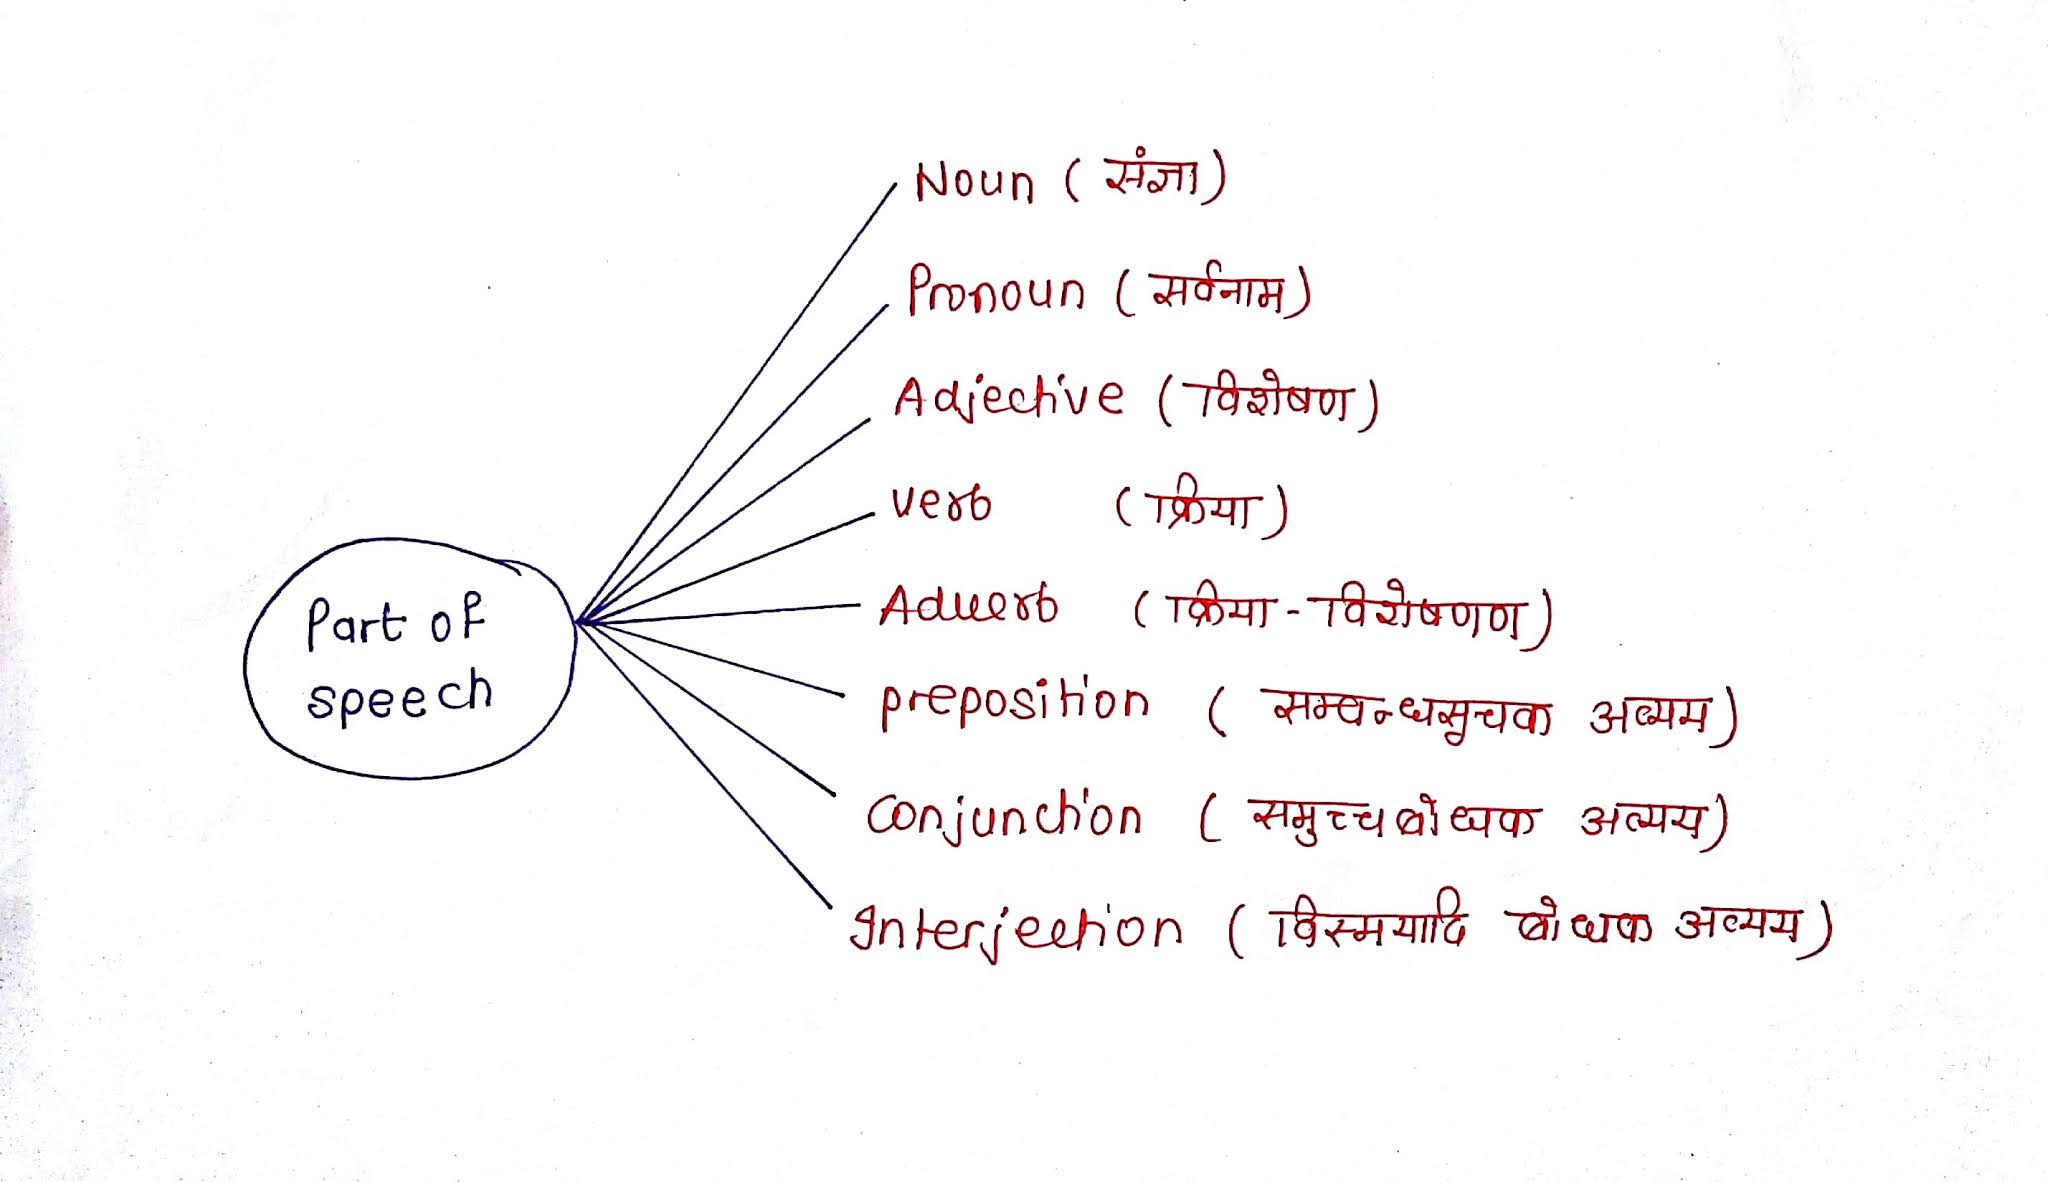 Part of
speech
Noun (संज्ञा)
Pronoun (सर्वनाम)
Adjective (विशेषण)
verb (क्रिया)
Adverb (क्रिया-विशेषणण)
preposition (सम्बन्धसूचक अव्यय)
conjunction (समुच्चबोधक अव्यय)
Interjection (विस्मयादि बोधक अव्यय)